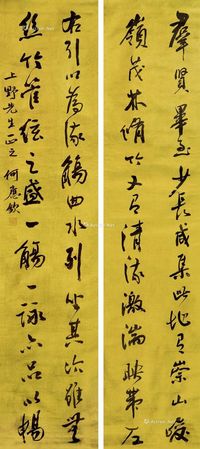 羣賢畢至少長咸集此地有崇山峻
嶺茂林脩竹又有清流激湍映帶左
右引以為流觴曲水列坐其次雖無
絲竹管絃之盛一觴一詠亦足以暢
上野先生正之 何應欽